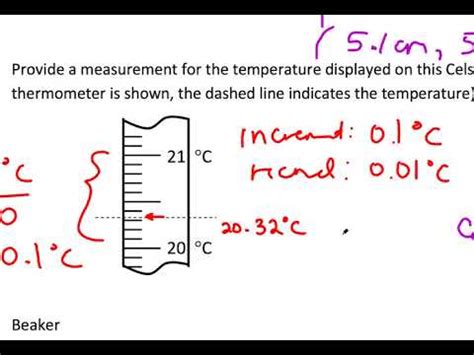 5.1cm, 5
Provide a measurement for the temperature displayed on this Cels
thermometer is shown, the dashed line indicates the temperature)
increment: 0.1°C
21 °C
record: 0.01°C
°C
0
20.32°C
0.1°C
20 °C
C
Beaker